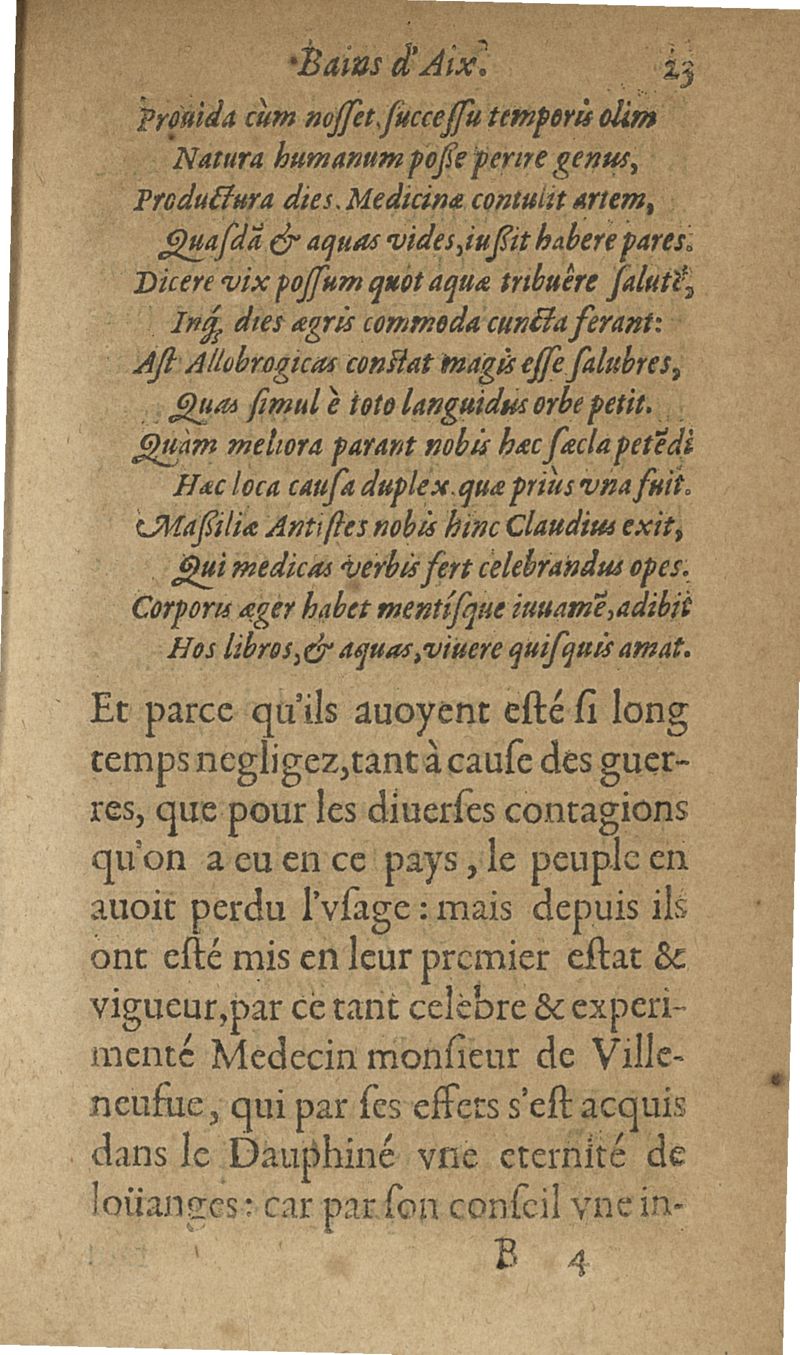 Bains d'Aix. 23
Prouida cùm noſſet ſucceſſu temporis olim
Natura humanum poſſe perire genus,
Productura dies. Medicinæ contulit artem,
Quaſdã & aquas vides, iuſſit habere pares.
Dicere vix poſſum quot aquæ tribuêre ſalutẽ,
Inq́; dies ægris commoda cuncta ferant:
Aſt Allobrogicas conſtat magis eſſe ſalubres,
Quas ſimul è toto languidus orbe petit.
Quàm meliora parant nobis hæc ſæcla petẽdi
Hæc loca cauſa duplex. quæ priùs vna fuit.
Maſſiliæ Antiſtes nobis hinc Claudius exit,
Qui medicas verbis fert celebrandus opes.
Corporis æger habet mentíſque iuuamẽ, adibit
Hos libros, & aquas, viuere quiſquis amat.
Et parce qu'ils auoyent eſté ſi long
temps negligez, tant à cauſe des guer-
res, que pour les diuerſes contagions
qu'on a eu en ce pays, le peuple en
auoit perdu l'vſage : mais depuis ils
ont eſté mis en leur premier eſtat &
vigueur, par ce tant celèbre & experi-
menté Medecin monſieur de Ville-
neufue, qui par ſes effets s'eſt acquis
dans le Dauphiné vne eternité de
loüanges : car par ſon conſeil vne in-
B 4